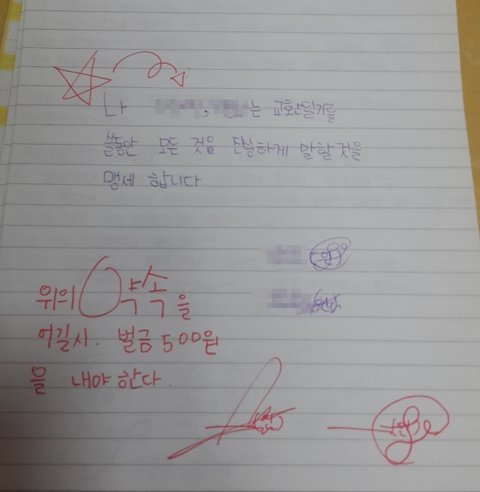 나 , 는 교환일기를
쓸동안 모든 것을 진실하게 말할 것을
맹세 합니다
위의 약속을
어길시. 벌금 500원
을 내야 한다.